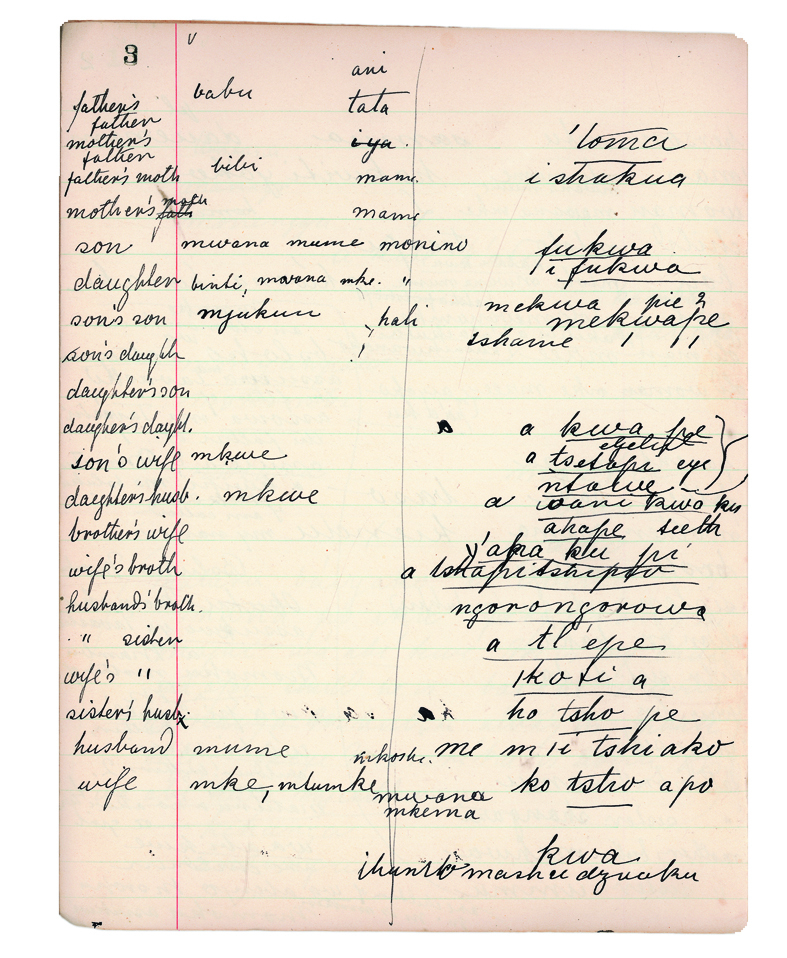 3
ani
father's babu tata
father
mother's iya. 'toma
father
father's moth bibi mama. i shakua
mother's moth fath mame
son mwana mume monino fukwa
i fukwa
daughter binti, mwana mke. "
son's son mjukuu hali mekwa pie ?
mekwape
son's daugh ishame
daughter'son
daugher's daught. a kwa pe
son's wife mkwe a tsetapi eye
ntawe
daughter's husb. mkwe a wani kwa ku
brother's wife ahape seeth
'aka ku pi
wife's broth a
husbands' broth. ngorongorowa
" sister a tl'epe
wife's " ikoti a
sister's husb. ho tsho pe
husband mume me m ii tshiako
wife mke, mtumke ko tsho apo
mwana
mkema
kwa